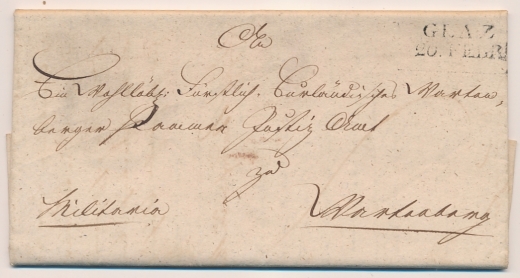 GLAZ
20. FEBR
An
Ein Wohllöbl: Fürstlich Curländisches Warten,
berger Kammer Justiz Amt
zu
Militaria
Wartenberg